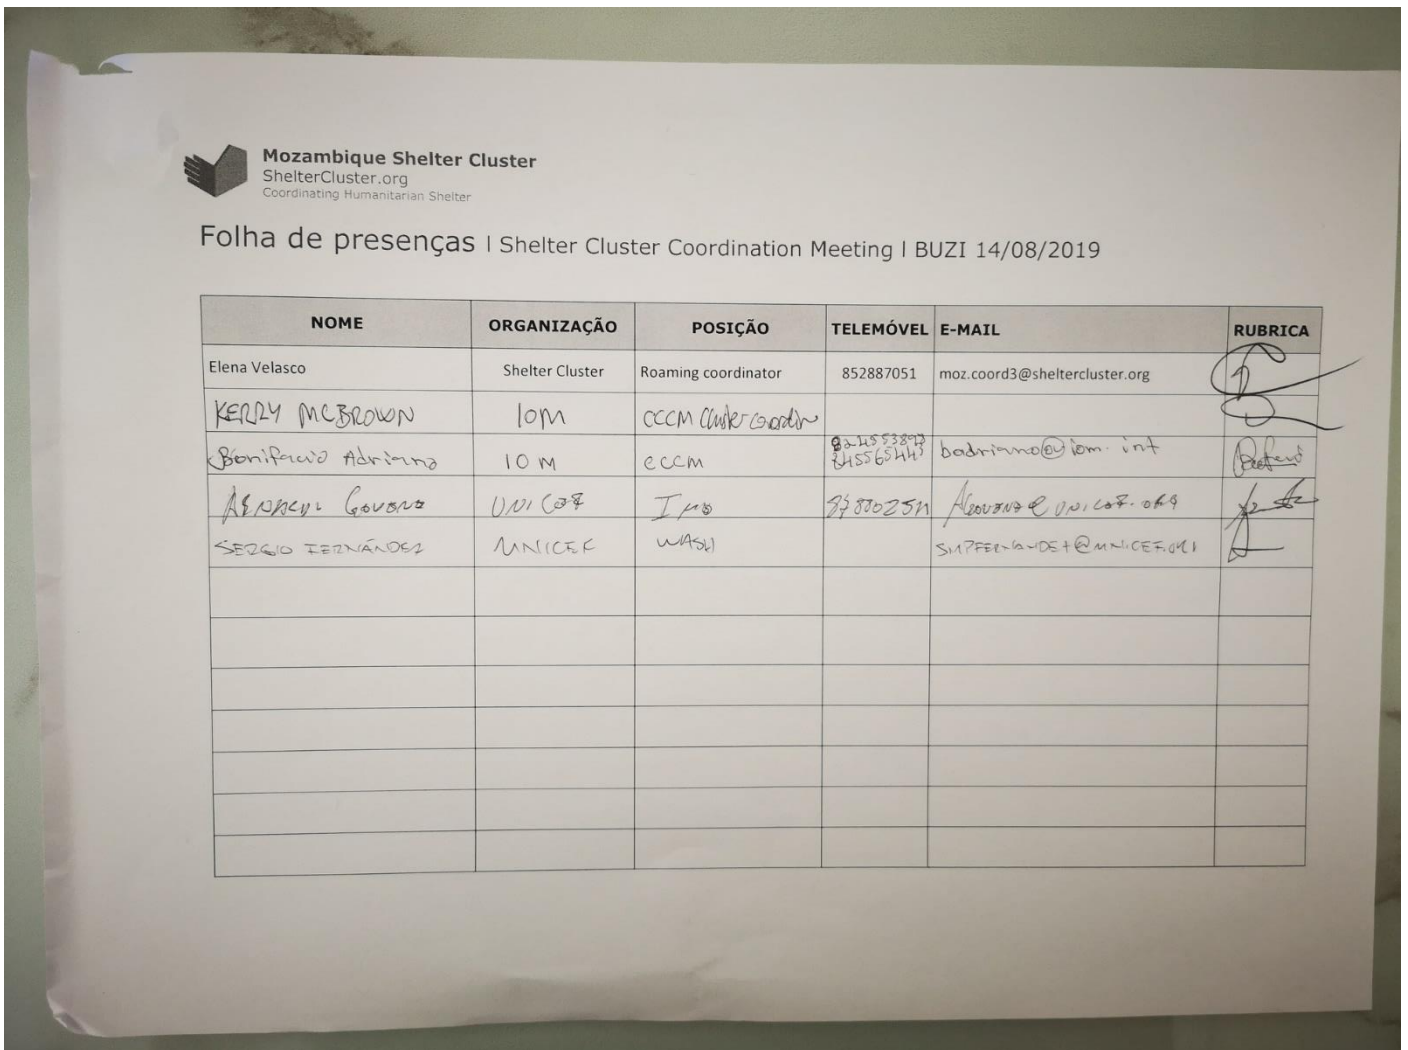 Mozambique Shelter Cluster
ShelterCluster.org
Coordinating Humanitarian Shelter
Folha de presenças | Shelter Cluster Coordination Meeting | BUZI 14/08/2019
NOME ORGANIZAÇÃO POSIÇÃO TELEMÓVEL E-MAIL RUBRICA
Elena Velasco Shelter Cluster Roaming coordinator 852887051 moz.coord3@sheltercluster.org
KERRY MCBROWN IOM CCCM Cluster
Bonifacio Adriano IOM CCCM badriano@iom.int
UNICEF
SERGIO FERNÁNDEZ UNICEF WASH